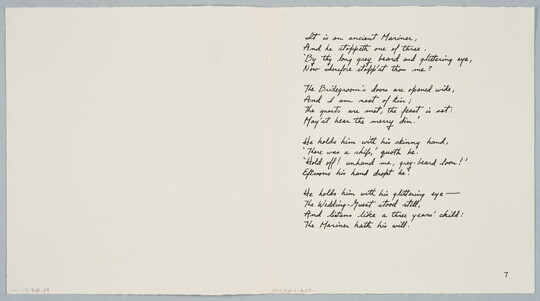 It is an ancient Mariner,
And he stoppeth one of three.
'By thy long grey beard and glittering eye,
Now wherefore stopp'st thou me?
The Bridegroom's doors are opened wide,
And I am next of kin;
The guests are met, the feast is set:
May'st hear the merry din.'
He holds him with his skinny hand,
'There was a ship,' quoth he.
'Hold off! unhand me, grey-beard loon!'
Eftsoons his hand dropt he.
He holds him with his glittering eye—
The Wedding-Guest stood still,
And listens like a three years' child:
The Mariner hath his will.
7